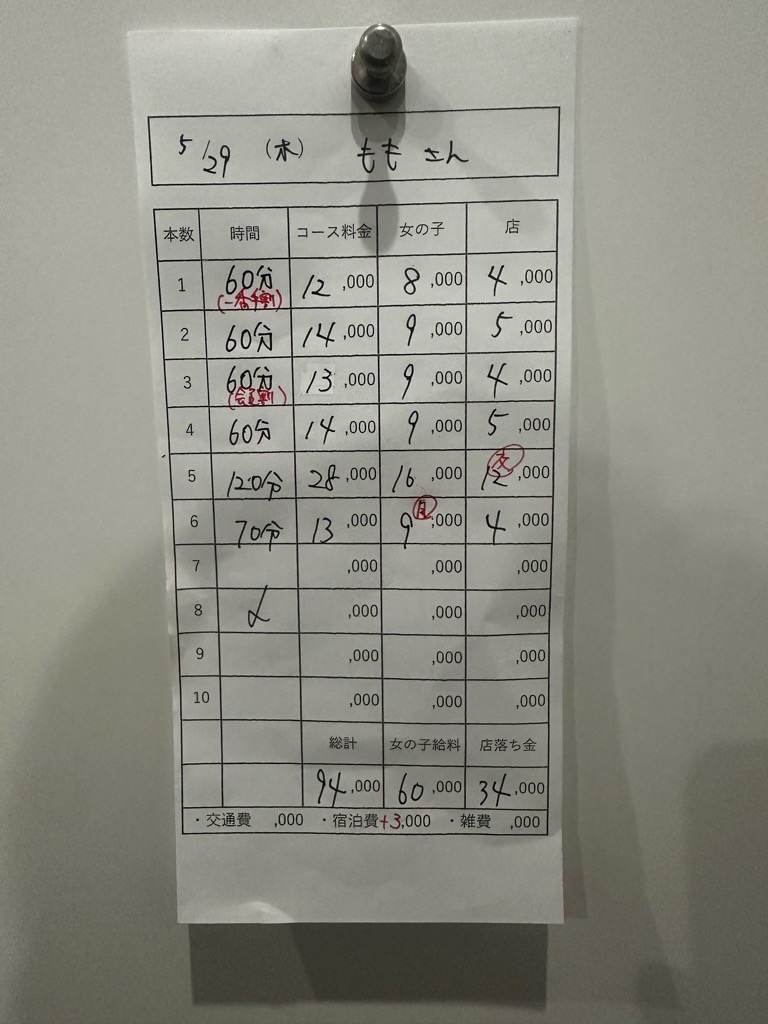 5/29 (木) ももさん
本数 時間 コース料金 女の子 店
1 60分 12,000 8,000 4,000
(一番手割)
2 60分 14,000 9,000 5,000
3 60分 13,000 9,000 4,000
(会員割)
4 60分 14,000 9,000 5,000
5 120分 28,000 16,000 12,000
6 70分 13,000 9,000 4,000
7 ,000 ,000 ,000
8 ,000 ,000 ,000
9 ,000 ,000 ,000
10 ,000 ,000 ,000
総計 女の子給料 店落ち金
94,000 60,000 34,000
・交通費 ,000 ・宿泊費+3,000 ・雑費 ,000